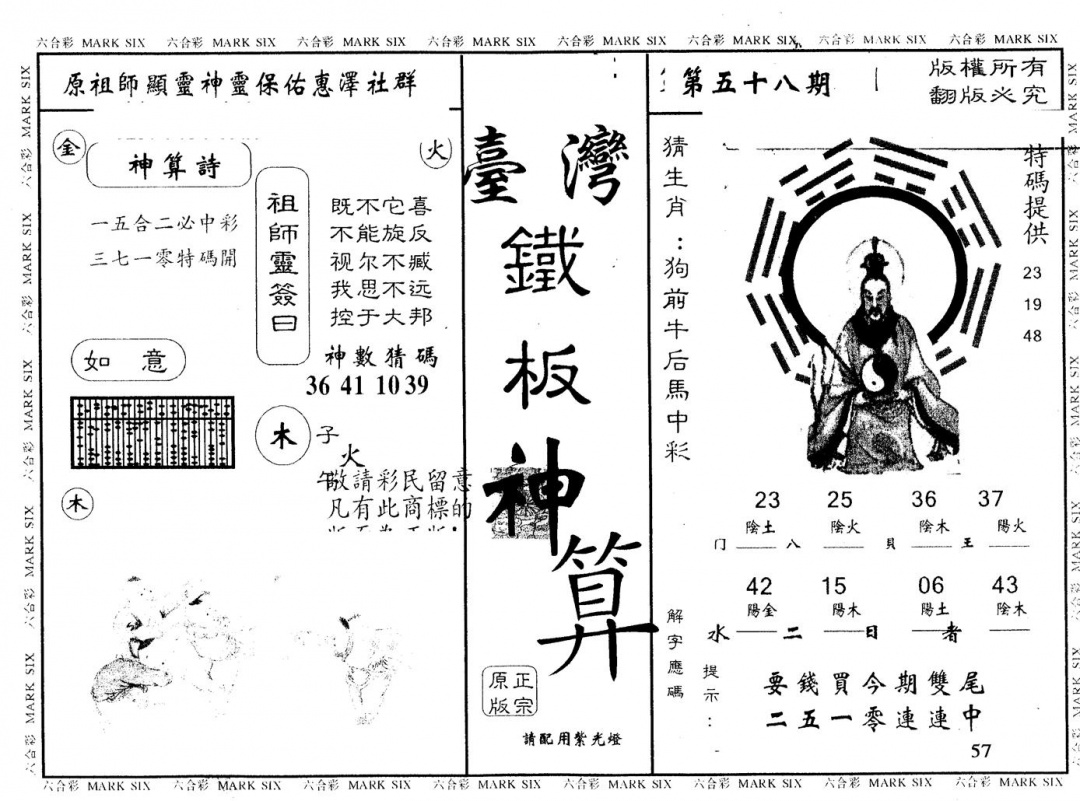 六合彩 MARK SIX 六合彩 MARK SIX 六合彩 MARK SIX 六合彩 MARK SIX 六合彩 MARK SIX 六合彩 MARK SIX 六合彩 MARK SIX 六合彩 MARK SIX
原祖師顯靈神靈保佑惠澤社群
金
神算詩
火
一五合二必中彩
三七一零特碼開
祖師靈簽曰
既不它喜
不能旋反
视尔不臧
我思不远
控于大邦
神數猜碼
36 41 10 39
如意
木
子
火
午
敬請彩民留意
凡有此商標的
木
臺灣
鐵
板
神
算
正宗
原版
請配用紫光燈
第五十八期
版權所有
翻版必究
猜生肖：狗前牛后馬中彩
特碼提供
23
19
48
23 25 36 37
陰土 陰火 陰木 陽火
门 八 貝 王
42 15 06 43
陽金 陽木 陽土 陰木
水 二 日 者
解字應碼
提示：
要錢買今期雙尾
二五一零連連中
57
六合彩 MARK SIX 六合彩 MARK SIX 六合彩 MARK SIX 六合彩 MARK SIX 六合彩 MARK SIX 六合彩 MARK SIX 六合彩 MARK SIX 六合彩 MARK SIX
六合彩 MARK SIX 六合彩 MARK SIX 六合彩 MARK SIX 六合彩 MARK SIX 六合彩 MARK SIX
六合彩 MARK SIX 六合彩 MARK SIX 六合彩 MARK SIX 六合彩 MARK SIX 六合彩 MARK SIX